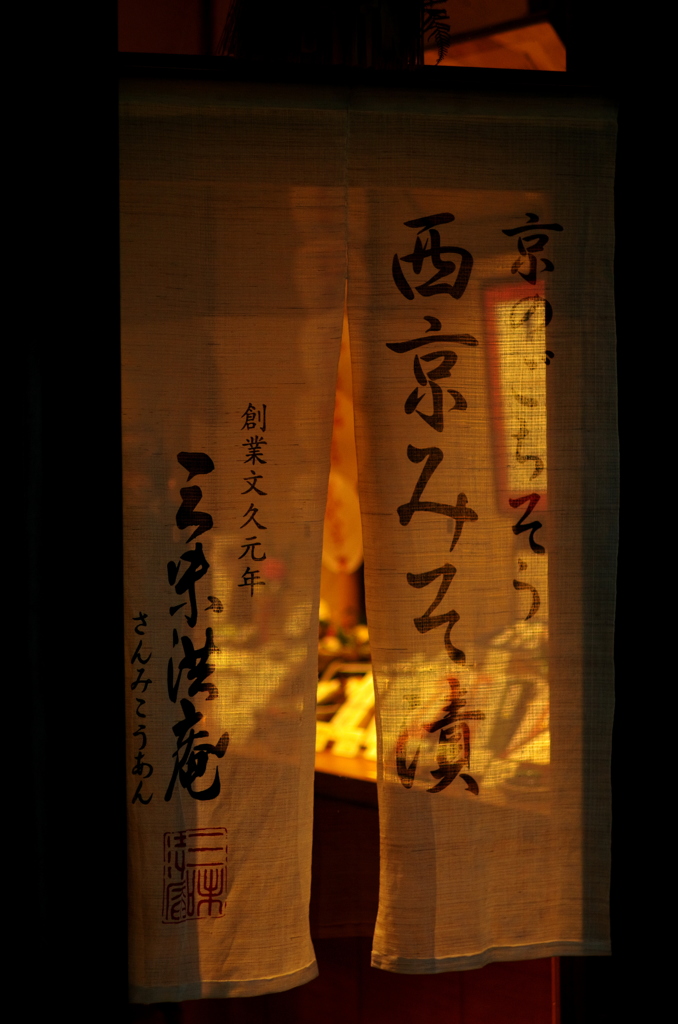 京のごちそう
西京みそ漬
創業文久元年
三味洪庵
さんみこうあん
三味
洪庵